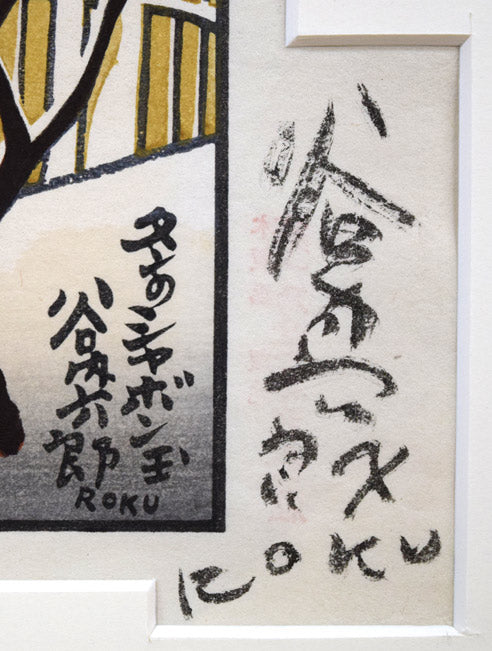 冬のシャボン玉
谷内六郎
ROKU
谷内六郎
ROKU